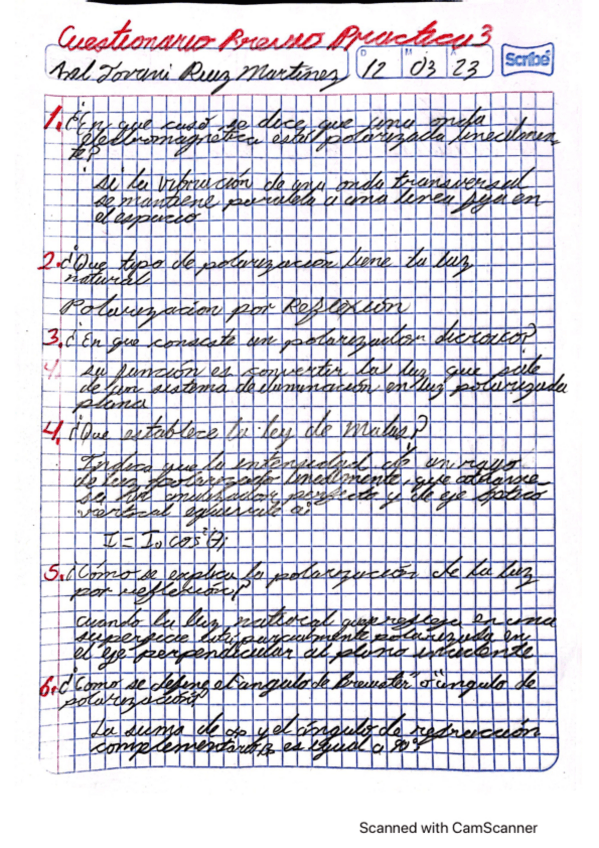 Cuestionario Previo Practica 3
Axl Jovani Ruiz Martinez D 12 M 03 A 23 Scribe
1. ¿En que caso se dice que una onda
electromagnética está polarizada linealmen-
te?
si la vibración de una onda transversal
se mantiene paralela a una linea fija en
el espacio
2. ¿Que tipo de polarización tiene la luz
natural
Polarizacion por Reflexión
3. ¿En que consiste un polarizador dicroico?
4.
su función es convertir la luz que sale
de un sistema de iluminación en luz polarizada
plana
4. ¿Que establece la ley de Malus?
Indica que la intensidad de un rayo
de luz polarizado linealmente, que atravie-
sa un perfecto y de eje óptico
vertical equivale a:
I = I₀ cos²θi
5. ¿Cómo se explica la polarización de la luz
por reflexión?
cuando la luz natural que refleja en una
superficie parcialmente polarizada en
el eje perpendicular al plano incidente
6. ¿Como se define el "angulo de Brewster" o "angulo de
polarización?
La suma de αp y el ángulo de refracción
complementario β es igual a 90°
Scanned with CamScanner